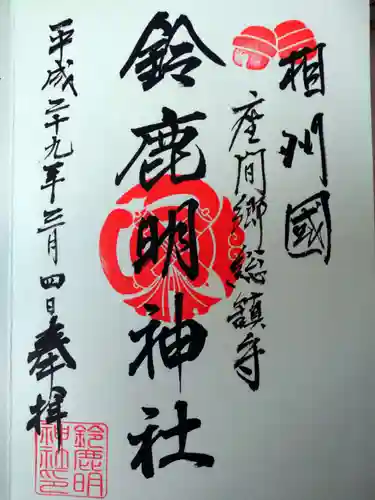 相州國
座間郷総鎮守
鈴鹿明神社
平成二十九年三月四日奉拝
鈴鹿明
神社印